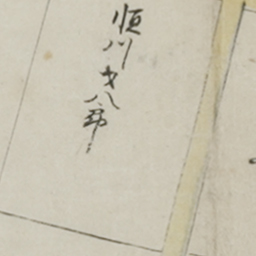 恒川才八郎